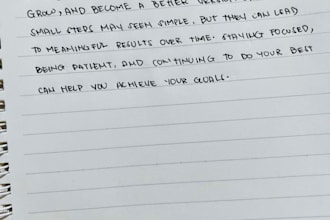 GROW, AND BECOME A BETTER
SMALL STEPS MAY SEEM SIMPLE, BUT THEY CAN LEAD
TO MEANINGFUL RESULTS OVER TIME. STAYING FOCUSED,
BEING PATIENT, AND CONTINUING TO DO YOUR BEST
CAN HELP YOU ACHIEVE YOUR GOALS.